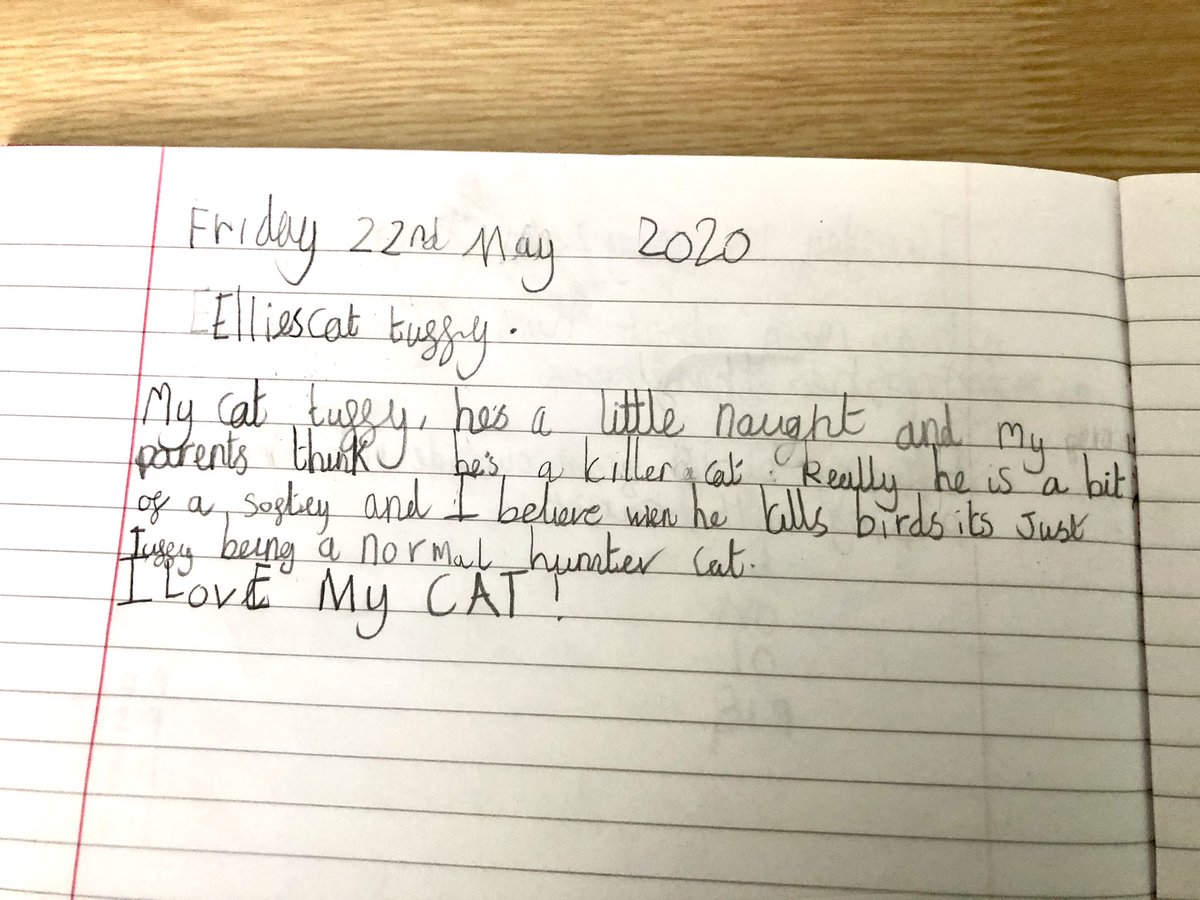 Friday 22nd May 2020
Elliescat tuffy.
My cat tuffy, he's a little naught and my
parents think he's a killer cat. Really he is a bit
of a softey and I believe wen he kills birds its Just
Tuffy being a normal hunter cat.
I LovE My CAT!